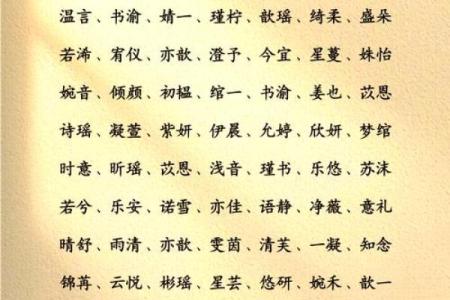 温言、书渝、婧一、瑾柠、歆瑶、绮柔、盛朵
若浠、宥仪、亦歆、澄予、今宜、星蔓、姝怡
婉音、倾颜、初韫、绾一、书渝、姜也、苡恩
诗瑶、凝萱、紫妍、伊晨、允婷、欣妍、梦绾
时意、昕瑶、苡恩、浅音、瑾书、乐悠、苏沫
若兮、乐安、诺雪、亦佳、语静、净薇、意礼
晴舒、雨清、亦歆、雯茵、清芙、一凝、知念
锦苒、云悦、彬瑶、星芸、悠研、婉禾、歆一